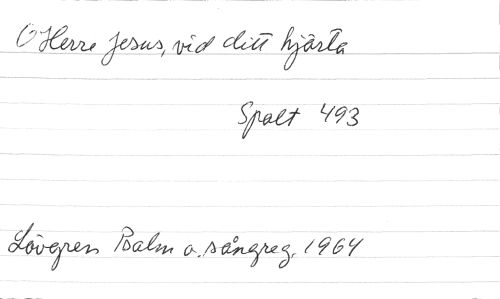 O Herre Jesus, vid ditt hjärta
Spalt 493
Lövgren Psalm o. sångreg. 1964